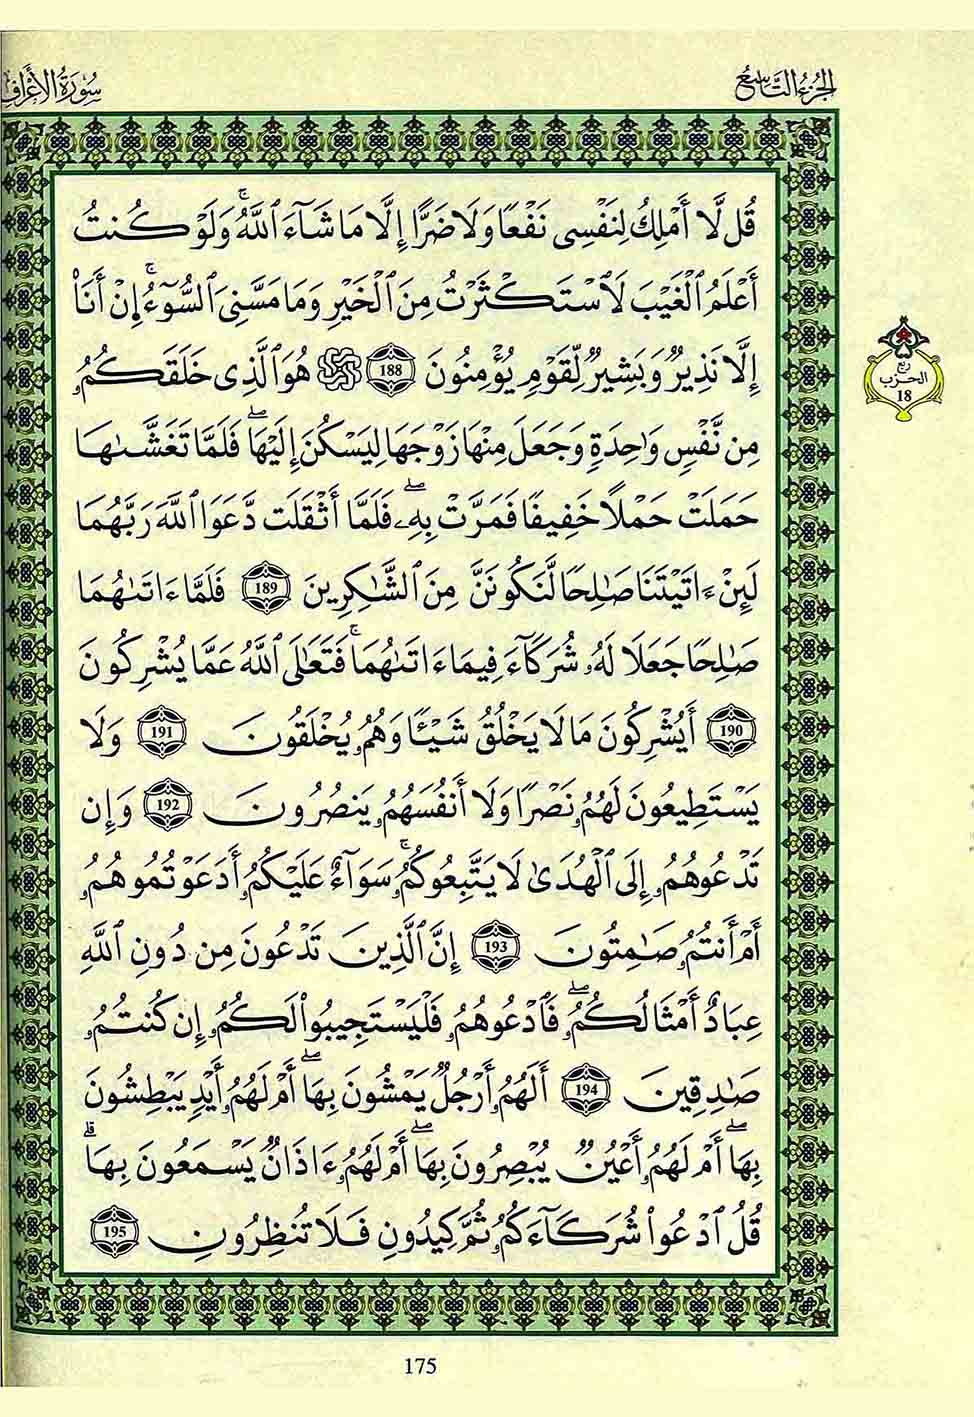 الجُزْءُ التَّاسِعُ
سُورَةُ الأَعْرَافِ
قُل لَّا أَمْلِكُ لِنَفْسِى نَفْعًا وَلَا ضَرًّا إِلَّا مَا شَآءَ ٱللَّهُ ۚ وَلَوْ كُنتُ
أَعْلَمُ ٱلْغَيْبَ لَٱسْتَكْثَرْتُ مِنَ ٱلْخَيْرِ وَمَا مَسَّنِىَ ٱلسُّوٓءُ ۚ إِنْ أَنَا۠
إِلَّا نَذِيرٌ وَبَشِيرٌ لِّقَوْمٍ يُؤْمِنُونَ 188 هُوَ ٱلَّذِى خَلَقَكُمُۥ
مِن نَّفْسٍ وَٰحِدَةٍ وَجَعَلَ مِنْهَا زَوْجَهَا لِيَسْكُنَ إِلَيْهَا ۖ فَلَمَّا تَغَشَّىٰهَا
حَمَلَتْ حَمْلًا خَفِيفًا فَمَرَّتْ بِهِۦ ۖ فَلَمَّا أَثْقَلَت دَّعَوَا ٱللَّهَ رَبَّهُمَا
لَئِنْ ءَاتَيْتَنَا صَٰلِحًا لَّنَكُونَنَّ مِنَ ٱلشَّٰكِرِينَ 189 فَلَمَّا ءَاتَىٰهُمَا
صَٰلِحًا جَعَلَا لَهُۥ شُرَكَآءَ فِيمَا ءَاتَىٰهُمَا ۚ فَتَعَٰلَى ٱللَّهُ عَمَّا يُشْرِكُونَ
190 أَيُشْرِكُونَ مَا لَا يَخْلُقُ شَيْـًٔا وَهُمُۥ يُخْلَقُونَ 191 وَلَا
يَسْتَطِيعُونَ لَهُمُۥ نَصْرًا وَلَا أَنفُسَهُمُۥ يَنصُرُونَ 192 وَإِن
تَدْعُوهُمُۥ إِلَى ٱلْهُدَىٰ لَا يَتَّبِعُوكُمُۥ ۚ سَوَآءٌ عَلَيْكُمُۥ أَدَعَوْتُمُوهُمُۥ
أَمْ أَنتُمُۥ صَٰمِتُونَ 193 إِنَّ ٱلَّذِينَ تَدْعُونَ مِن دُونِ ٱللَّهِ
عِبَادٌ أَمْثَالُكُمُۥ ۖ فَٱدْعُوهُمُۥ فَلْيَسْتَجِيبُوا۟ لَكُمُۥ إِن كُنتُمُۥ
صَٰدِقِينَ 194 أَلَهُمُۥ أَرْجُلٌ يَمْشُونَ بِهَا ۖ أَمْ لَهُمُۥ أَيْدٍ يَبْطِشُونَ
بِهَا ۖ أَمْ لَهُمُۥ أَعْيُنٌ يُبْصِرُونَ بِهَا ۖ أَمْ لَهُمُۥ ءَاذَانٌ يَسْمَعُونَ بِهَا ۗ
قُلُ ٱدْعُوا۟ شُرَكَآءَكُمُۥ ثُمَّ كِيدُونِ فَلَا تُنظِرُونِ 195
ربع
الحزب
18
175